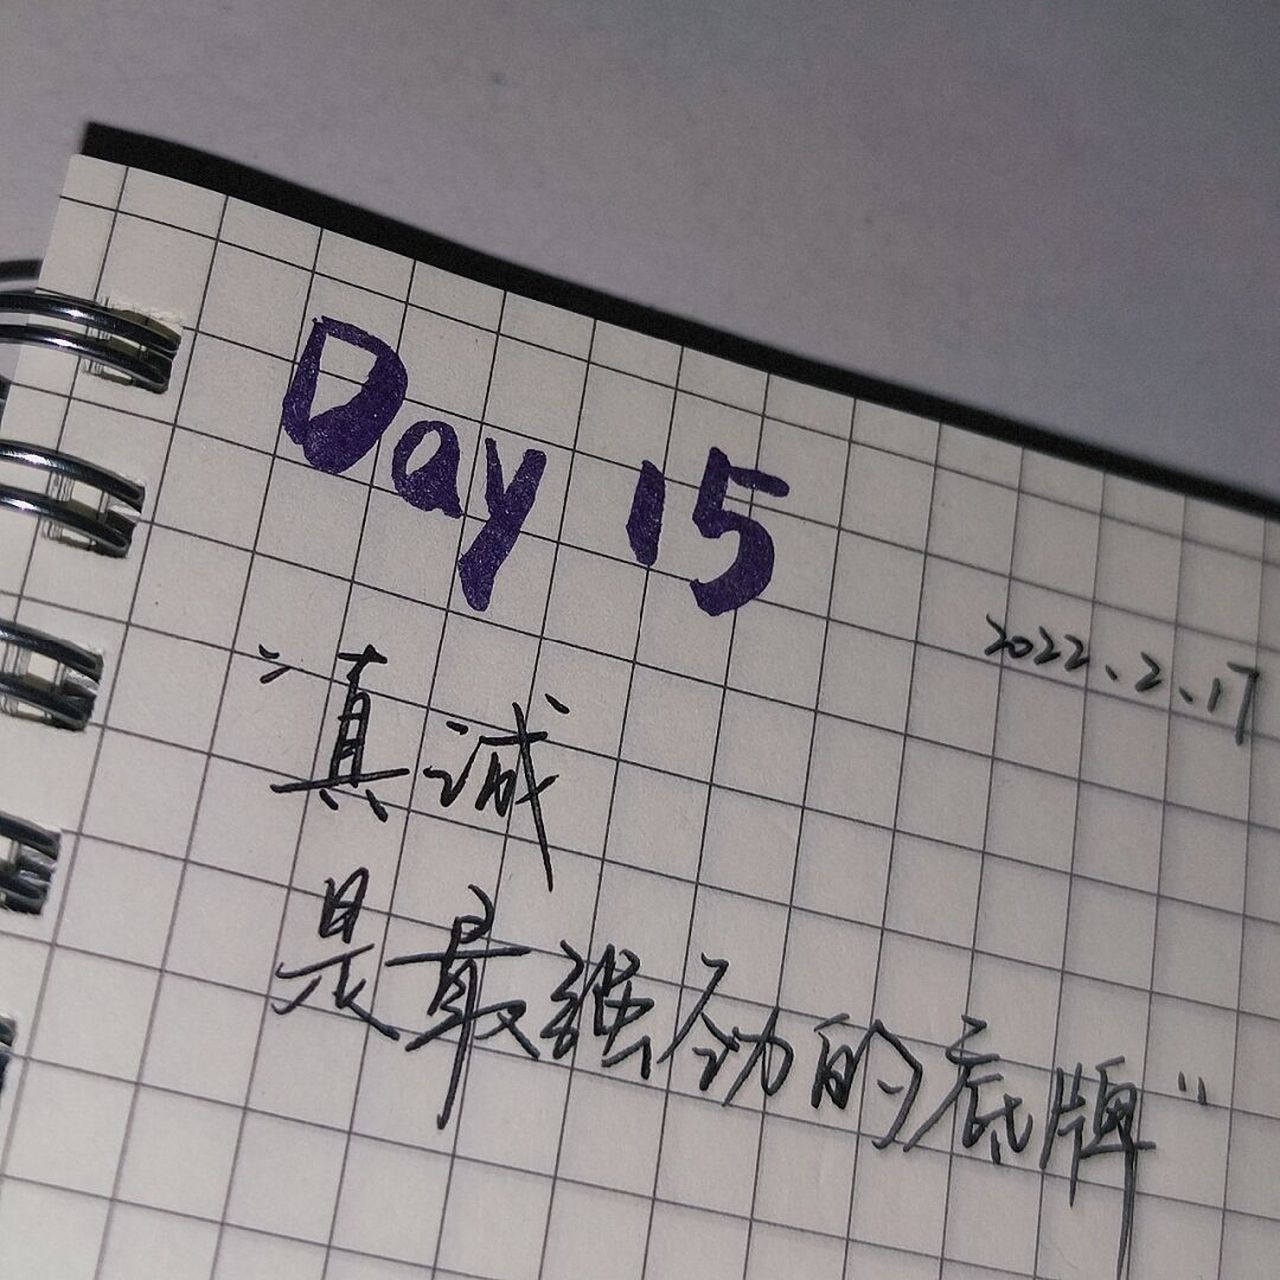 Day 15
2022.2.17
“真诚
是最强劲的底牌”